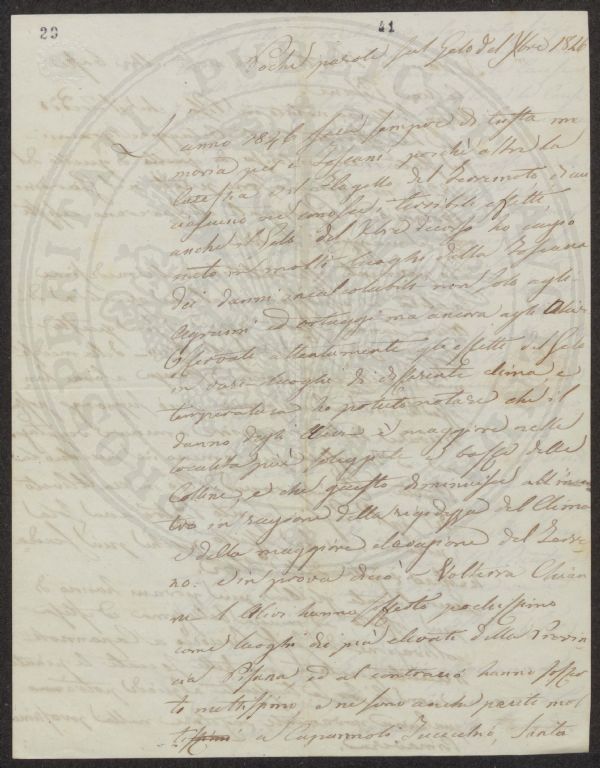 29
41
Poche parole sul Gelo del Xbre 1846
L'anno 1846 sarà sempre di trista me
moria per i Toscani perché oltre la
catastrofe del Flagello del Terremoto di cui
ciascuno ne conosce i terribili effetti
anche il Gelo del Xbre decorso ha cagio
nato in molti luoghi della Toscana
dei danni incalcolabili non solo agli
Agrumi ed ortaggi ma ancora agli Ulivi
Osservate attentamente gli effetti del Gelo
in vari luoghi di differente clima e
temperatura ho potuto notare che il
danno degli Ulivi è maggiore nelle
località più soleggiate e basse delle
Colline, e che questo diminuisce all'incon
tro in ragione della rigidezza del Clima
e della maggiore elevazione del Terre
no: e in prova di ciò a Volterra Chian
ni l'Ulivi hanno sofferto pochissimo
come luoghi di più elevati della Provin
cia Pisana, ed al contrario hanno soffer
to moltissimo, e ne sono anche periti mol
a Capannoli Fucecchio, Santa
PROSPERITATI PUBLICAE